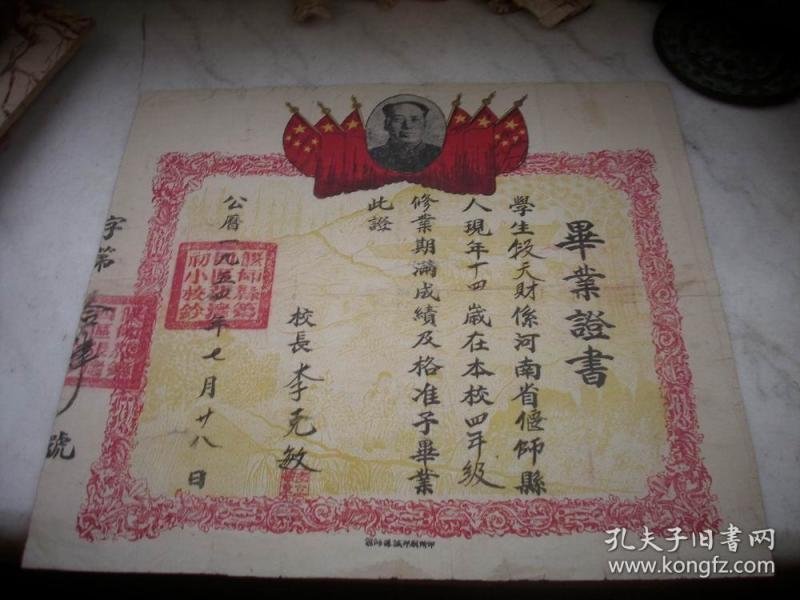 畢業證書
學生段天財係河南省偃師縣
人現年十四歲在本校四年級
修業期滿成績及格准予畢業
此證
校長 李克敏
公曆一九五四年七月廿八日
字第
號
孔夫子旧书网
www.kongfz.com